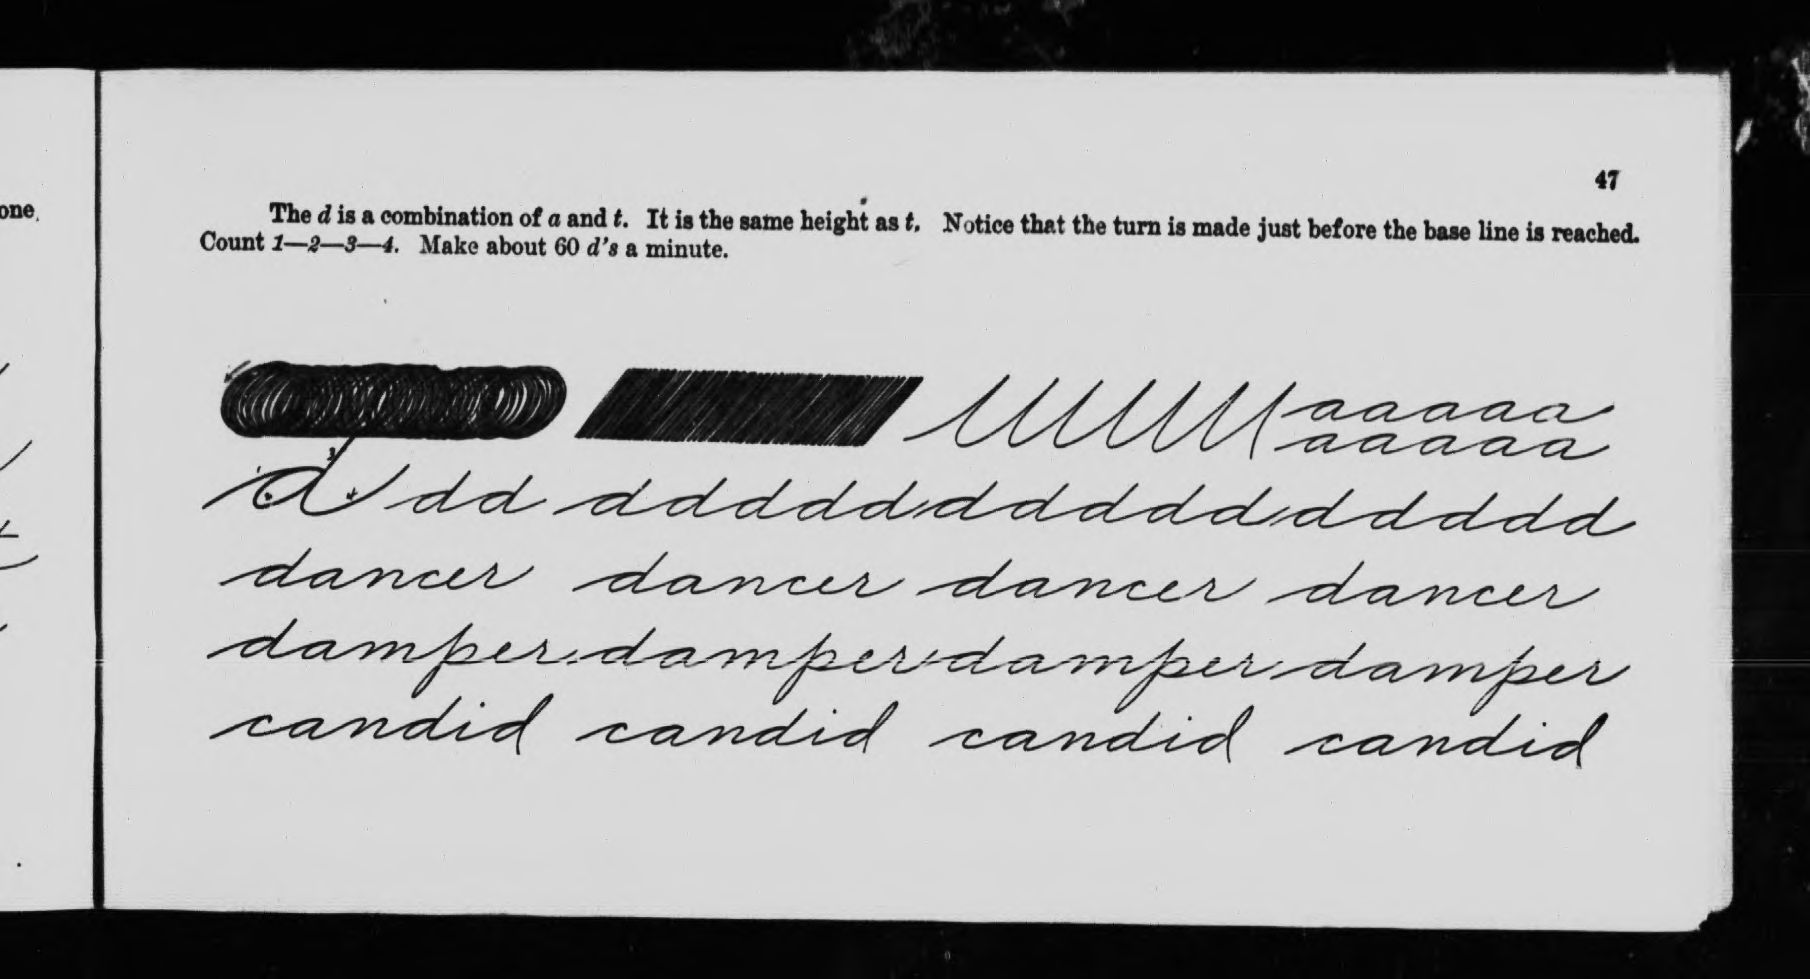 one.
47
The d is a combination of a and t. It is the same height as t. Notice that the turn is made just before the base line is reached.
Count 1—2—3—4. Make about 60 d's a minute.
aaaaa
aaaaa
d dd ddddd ddddd ddddd
dancer dancer dancer dancer
damper damper damper damper
candid candid candid candid